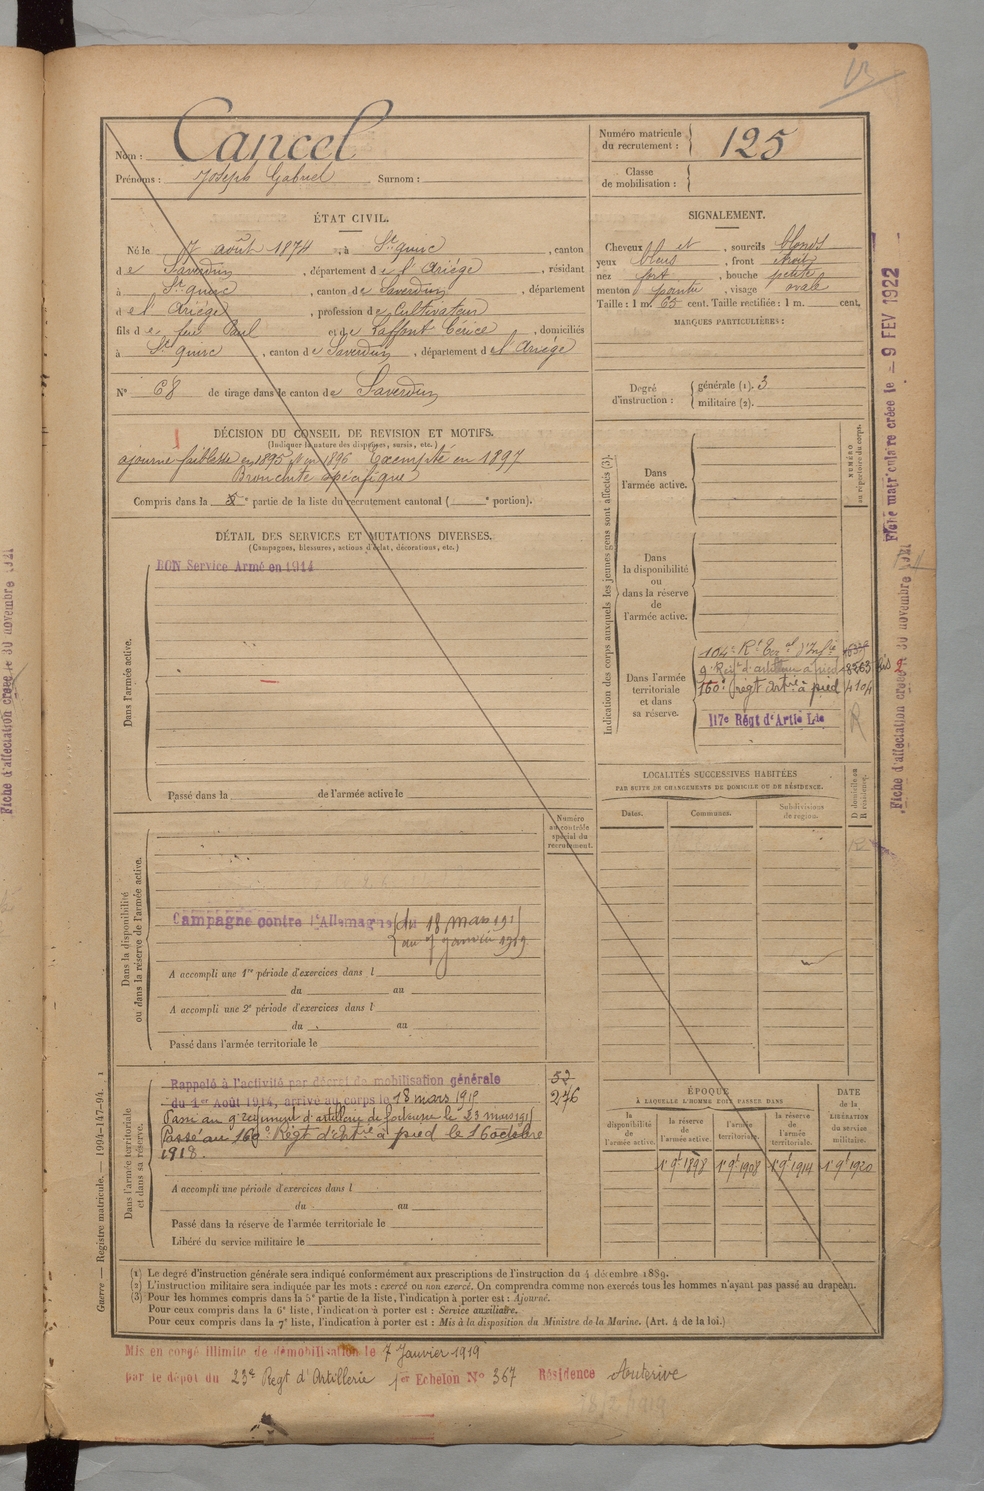 Nom : Cancel
Prénoms : Joseph Gabriel Surnom :
Numéro matricule du recrutement : 125
Classe de mobilisation :
ÉTAT CIVIL.
Né le 7 août 1874, à St quirc, canton
de Saverdun, département de l'Ariége, résidant
à St quirc, canton de Saverdun, département
de l'Ariége, profession de Cultivateur
fils de feu Paul et de Laffont Cérice, domiciliés
à St quirc, canton de Saverdun, département de l'Ariége
N° 68 de tirage dans le canton de Saverdun
SIGNALEMENT.
Cheveux et, sourcils blonds
yeux bleus, front étroit
nez fort, bouche petite
menton pointu, visage ovale
Taille : 1 m. 65 cent. Taille rectifiée : 1 m. cent.
MARQUES PARTICULIÈRES :
Degré d'instruction : générale (1). 3
militaire (2).
DÉCISION DU CONSEIL DE REVISION ET MOTIFS.
(Indiquer la nature des dispenses, sursis, etc.)
ajourné faiblesse en 1895 et en 1896 Exempté en 1897
Bronchite spécifique
Compris dans la 5e partie de la liste du recrutement cantonal ( e portion).
DÉTAIL DES SERVICES ET MUTATIONS DIVERSES.
(Campagnes, blessures, actions d'éclat, décorations, etc.)
Dans l'armée active.
BON Service Armé en 1914
Passé dans la de l'armée active le
Indication des corps auxquels les jeunes gens sont affectés (3).
NUMÉRO au répertoire du corps.
Dans l'armée active.
Dans la disponibilité ou dans la réserve de l'armée active.
Dans l'armée territoriale et dans sa réserve.
104e Rt d'Infie
9e Regt d'artillerie à pied 8563 bis
160e régt Artie à pied 4104
117e Régt d'Artie Lde
R
LOCALITÉS SUCCESSIVES HABITÉES
PAR SUITE DE CHANGEMENTS DE DOMICILE OU DE RÉSIDENCE.
Dates. Communes. Subdivisions de région. D domicile ou R résidence.
Numéro au contrôle spécial du recrutement.
Dans la disponibilité ou dans la réserve de l'armée active.
Campagne contre l'Allemagne du 18 mars 1915
au 7 janvier 1919
A accompli une 1re période d'exercices dans l
du au
A accompli une 2e période d'exercices dans l
du au
Passé dans l'armée territoriale le
Dans l'armée territoriale et dans sa réserve.
Rappelé à l'activité par décret de mobilisation générale
du 1er Août 1914, arrivé au corps le 18 mars 1915
Passé au 9e régiment d'artillerie de le 23 mars 1915
Passé au 160e Régt d'Artie à pied le 16 octobre
1918.
52
276
A accompli une période d'exercices dans l
du au
Passé dans la réserve de l'armée territoriale le
Libéré du service militaire le
ÉPOQUE
A LAQUELLE L'HOMME DOIT PASSER DANS
la disponibilité de l'armée active.
la réserve de l'armée active.
l'armée territoriale.
la réserve de l'armée territoriale.
DATE de la LIBÉRATION du service militaire.
1er 9bre 1898
1er 9bre 1908
1er 9bre 1914
1er 9bre 1920
(1) Le degré d'instruction générale sera indiqué conformément aux prescriptions de l'instruction du 4 décembre 1889.
(2) L'instruction militaire sera indiquée par les mots : exercé ou non exercé. On comprendra comme non exercés tous les hommes n'ayant pas passé au drapeau.
(3) Pour les hommes compris dans la 5e partie de la liste, l'indication à porter est : Ajourné.
Pour ceux compris dans la 6e liste, l'indication à porter est : Service auxiliaire.
Pour ceux compris dans la 7e liste, l'indication à porter est : Mis à la disposition du Ministre de la Marine. (Art. 4 de la loi.)
Mis en congé illimité de démobilisation le 7 Janvier 1919
par le dépot du 23e Regt d'Artillerie 1er Echelon N° 367 Résidence Auterive
Guerre — Registre matricule. — 1994-147-94.
Fiche matriculaire créée le 9 FEV 1922
Fiche d'affectation créée le 30 novembre 1921
Fiche d'affectation créée le 30 novembre 1921